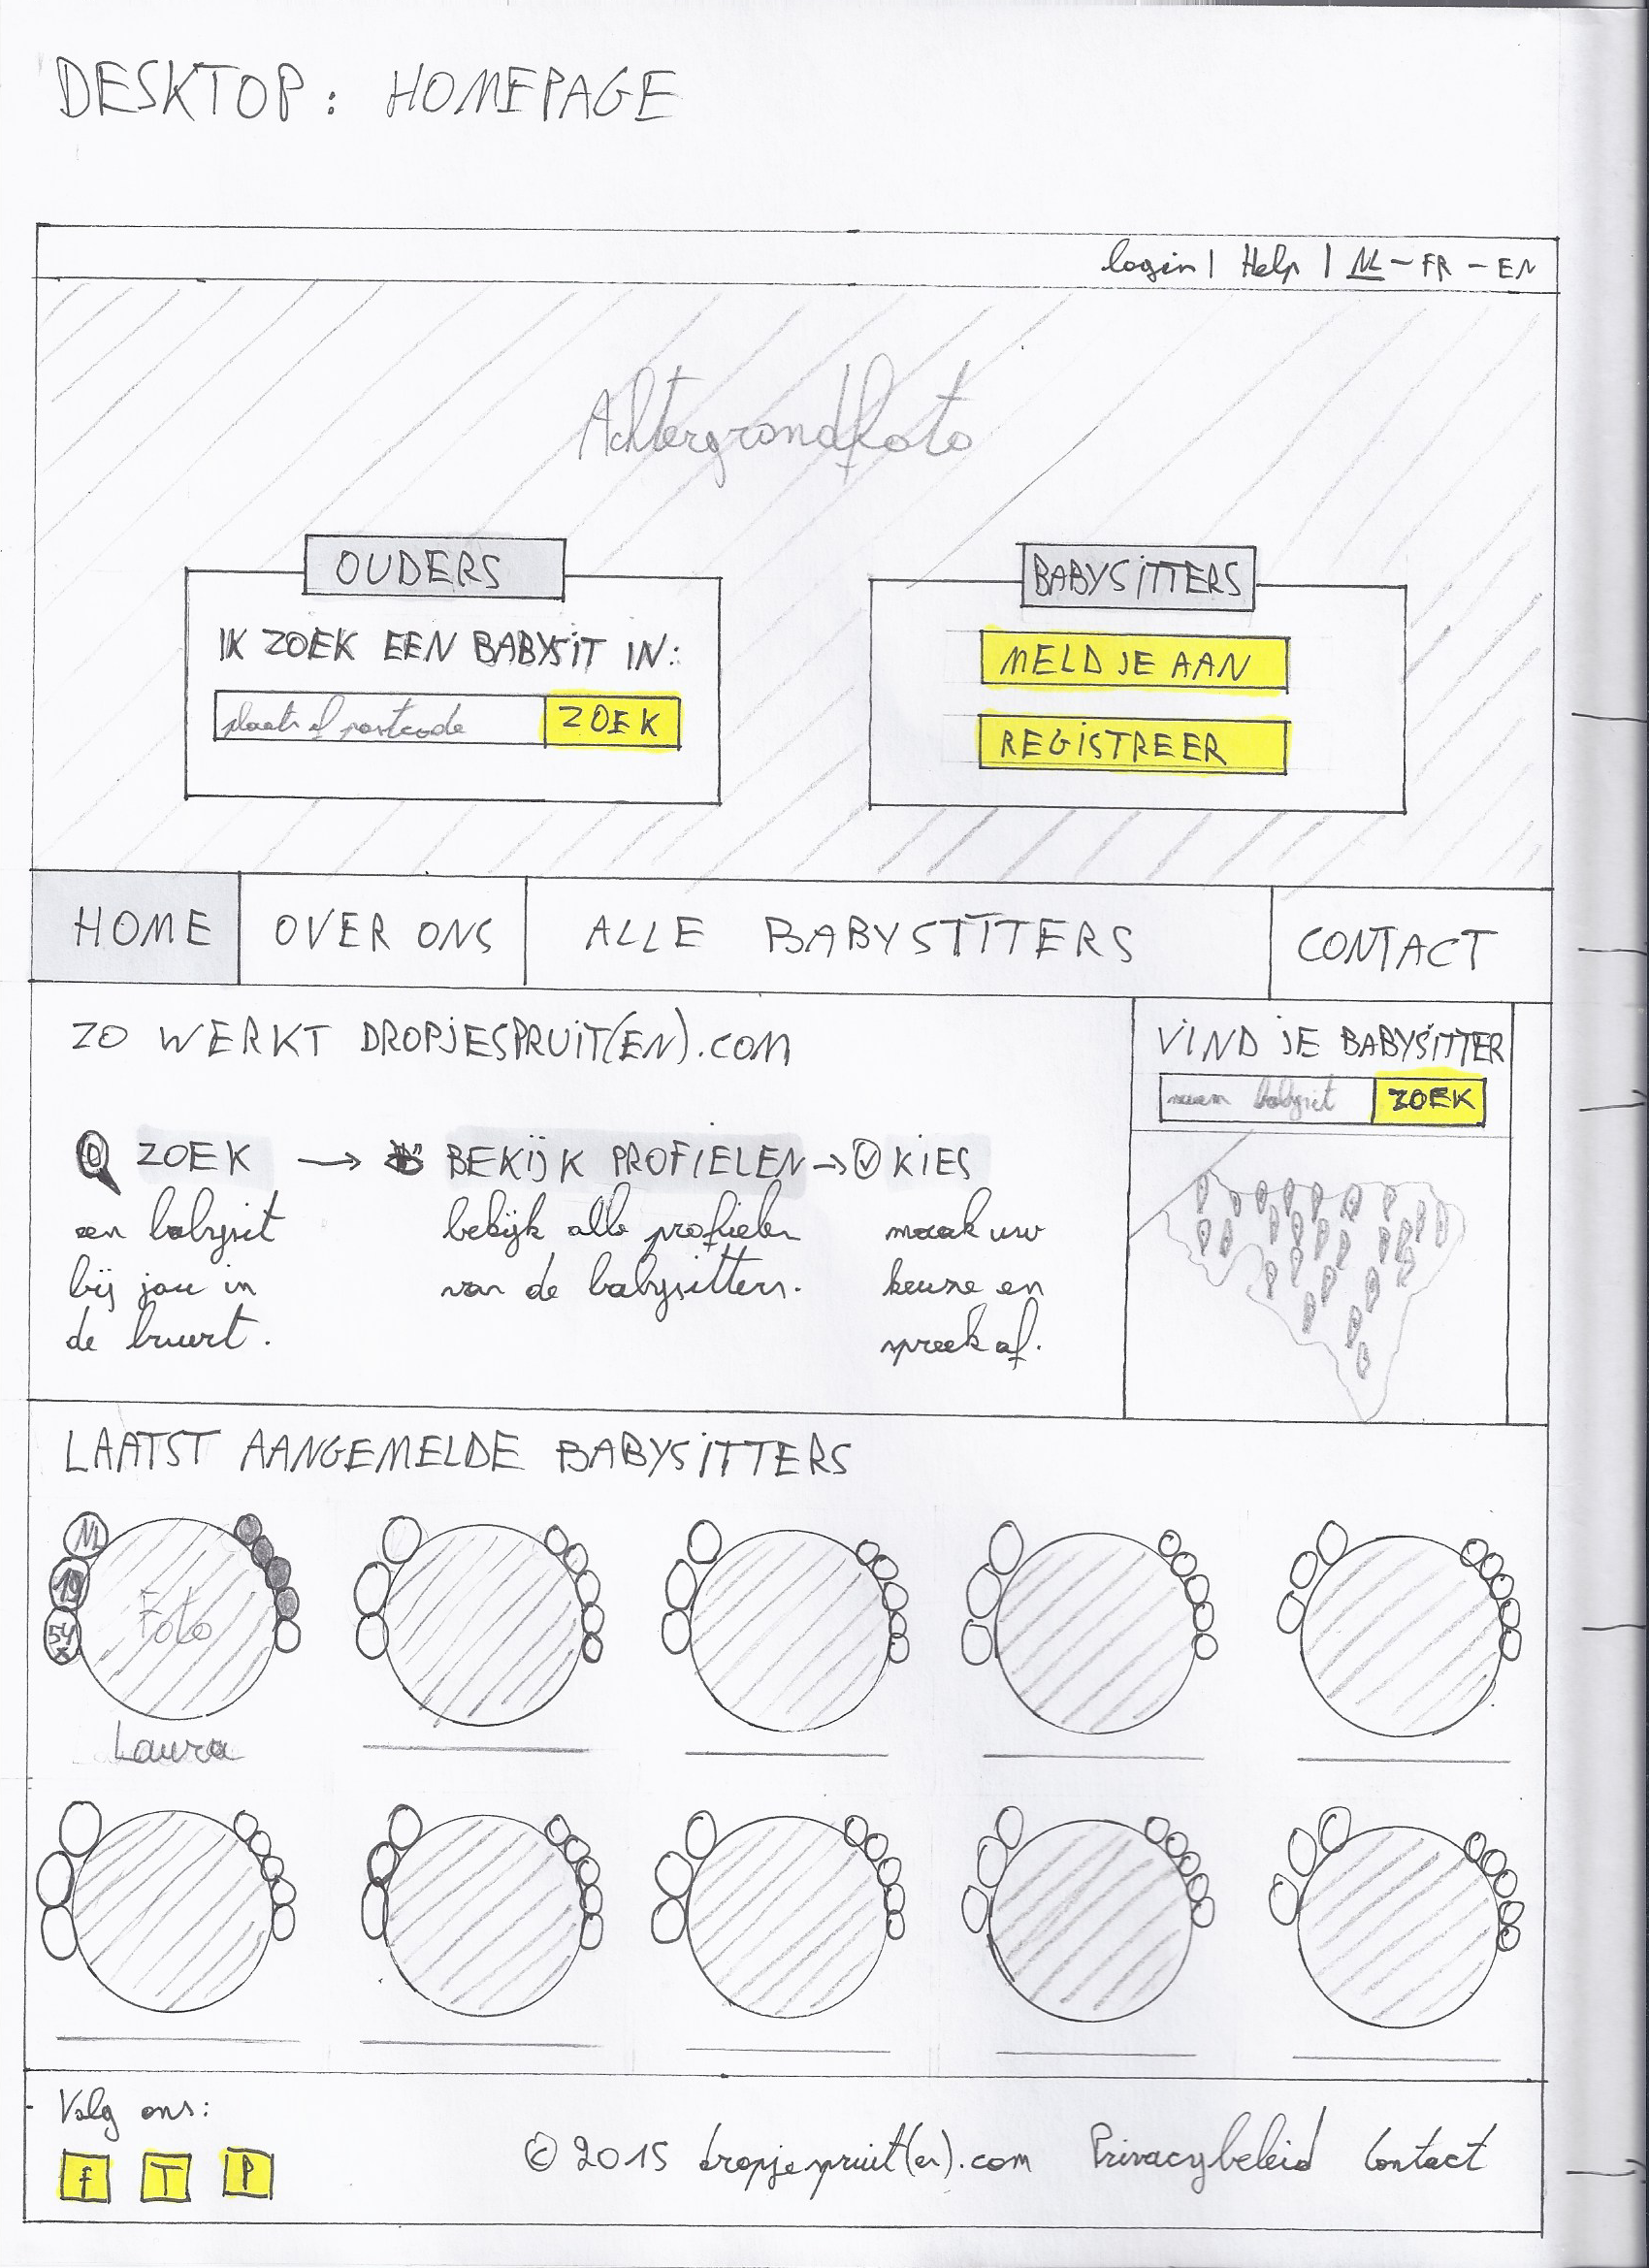 DESKTOP: HOMEPAGE
login | Help | NL - FR - EN
Achtergrondfoto
OUDERS
IK ZOEK EEN BABYSIT IN:
plaats of postcode ZOEK
BABYSITTERS
MELD JE AAN
REGISTREER
HOME OVER ONS ALLE BABYSITTERS CONTACT
ZO WERKT DROPJESPRUIT(EN).COM
ZOEK → BEKIJK PROFIELEN → KIES
een babysit
bij jou in
de buurt.
bekijk alle profielen
van de babysitters.
maak uw
keuze en
spreek af.
VIND JE BABYSITTER
naam babysit ZOEK
LAATST AANGEMELDE BABYSITTERS
NL
19
54
x
Foto
Laura
Volg ons:
f T P
© 2015 dropjespruit(en).com Privacybeleid Contact